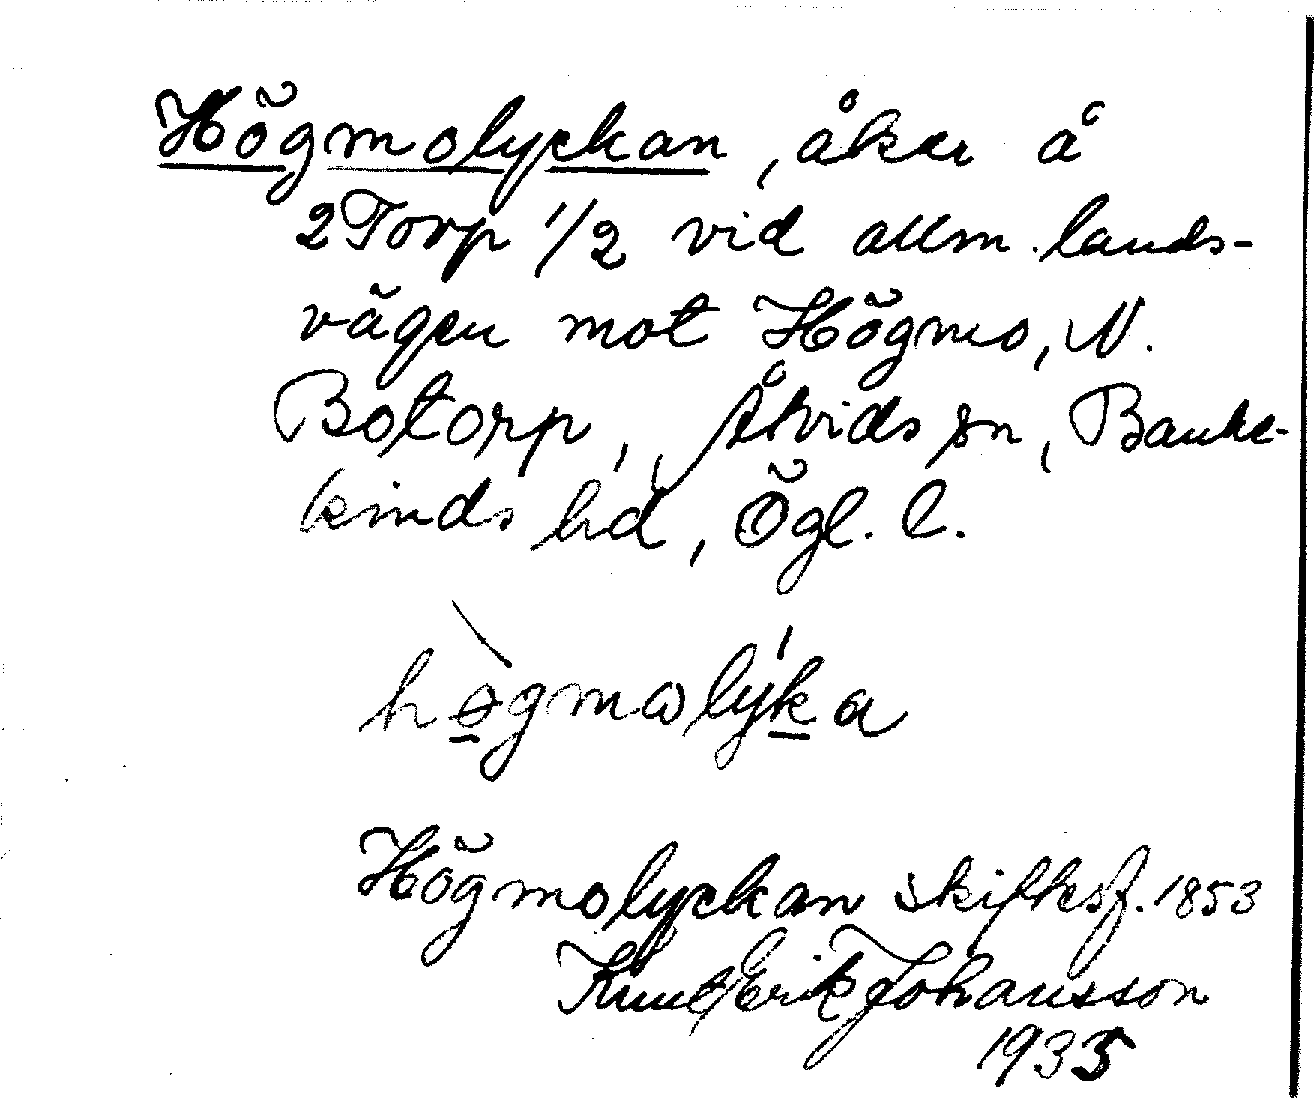 Högmolyckan, åker å
2 Torp 1/2 vid allm. lands-
vägen mot Högmo, N.
Botorp, Åtvids sn, Banke-
kinds hd, Ögl. l.
høgmωlýka
Högmolyckan skifksf. 1853
Knut Erik Johansson
1935